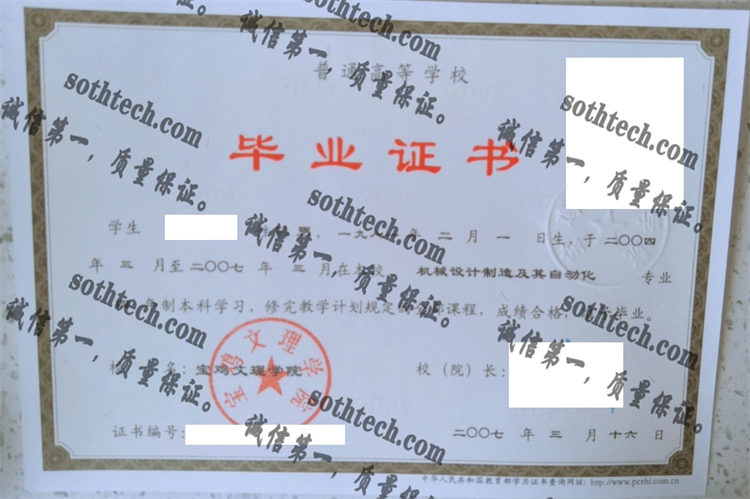 普通高等学校
毕业证书
学生 ，一九 年 二 月 一 日生，于 二〇〇四
年 三 月至 二〇〇七 年 三 月在本校 机械设计制造及其自动化 专业
年制本科学习，修完教学计划规定的全部课程，成绩合格，准予毕业。
校 名：宝鸡文理学院
校（院）长：
宝鸡文理学院
证书编号：
二〇〇七 年 三 月 十六 日
中华人民共和国教育部学历证书查询网址：http://www.pczhi.com.cn
sothtech.com
诚信第一，质量保证。
sothtech.com
诚信第一，质量保证。
sothtech.com
诚信第一，质量保证。
sothtech.com
诚信第一，质量保证。
sothtech.com
诚信第一，质量保证。
sothtech.com
诚信第一，质量保证。
sothtech.com
诚信第一，质量保证。
sothtech.com
诚信第一，质量保证。